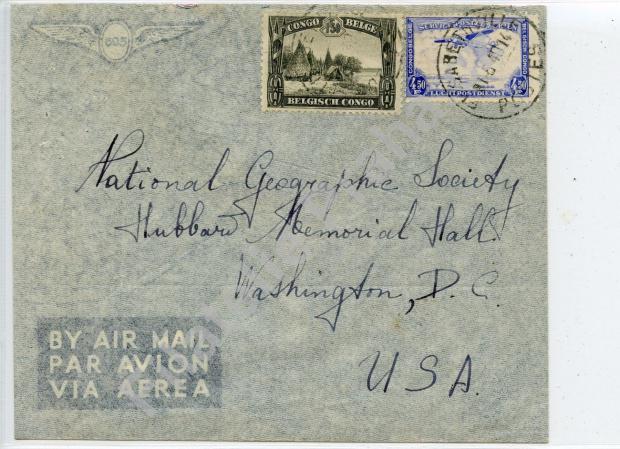 COS
CONGO BELGE
BELGISCH CONGO
CONGO BELGE
BELGISCH CONGO
4,50
4,50
LUCHTPOSTDIENST
ELISABETHVILLE
POSTES
National Geographic Society
Hubbard Memorial Hall
Washington, D. C.
BY AIR MAIL
PAR AVION
VIA AEREA
USA.